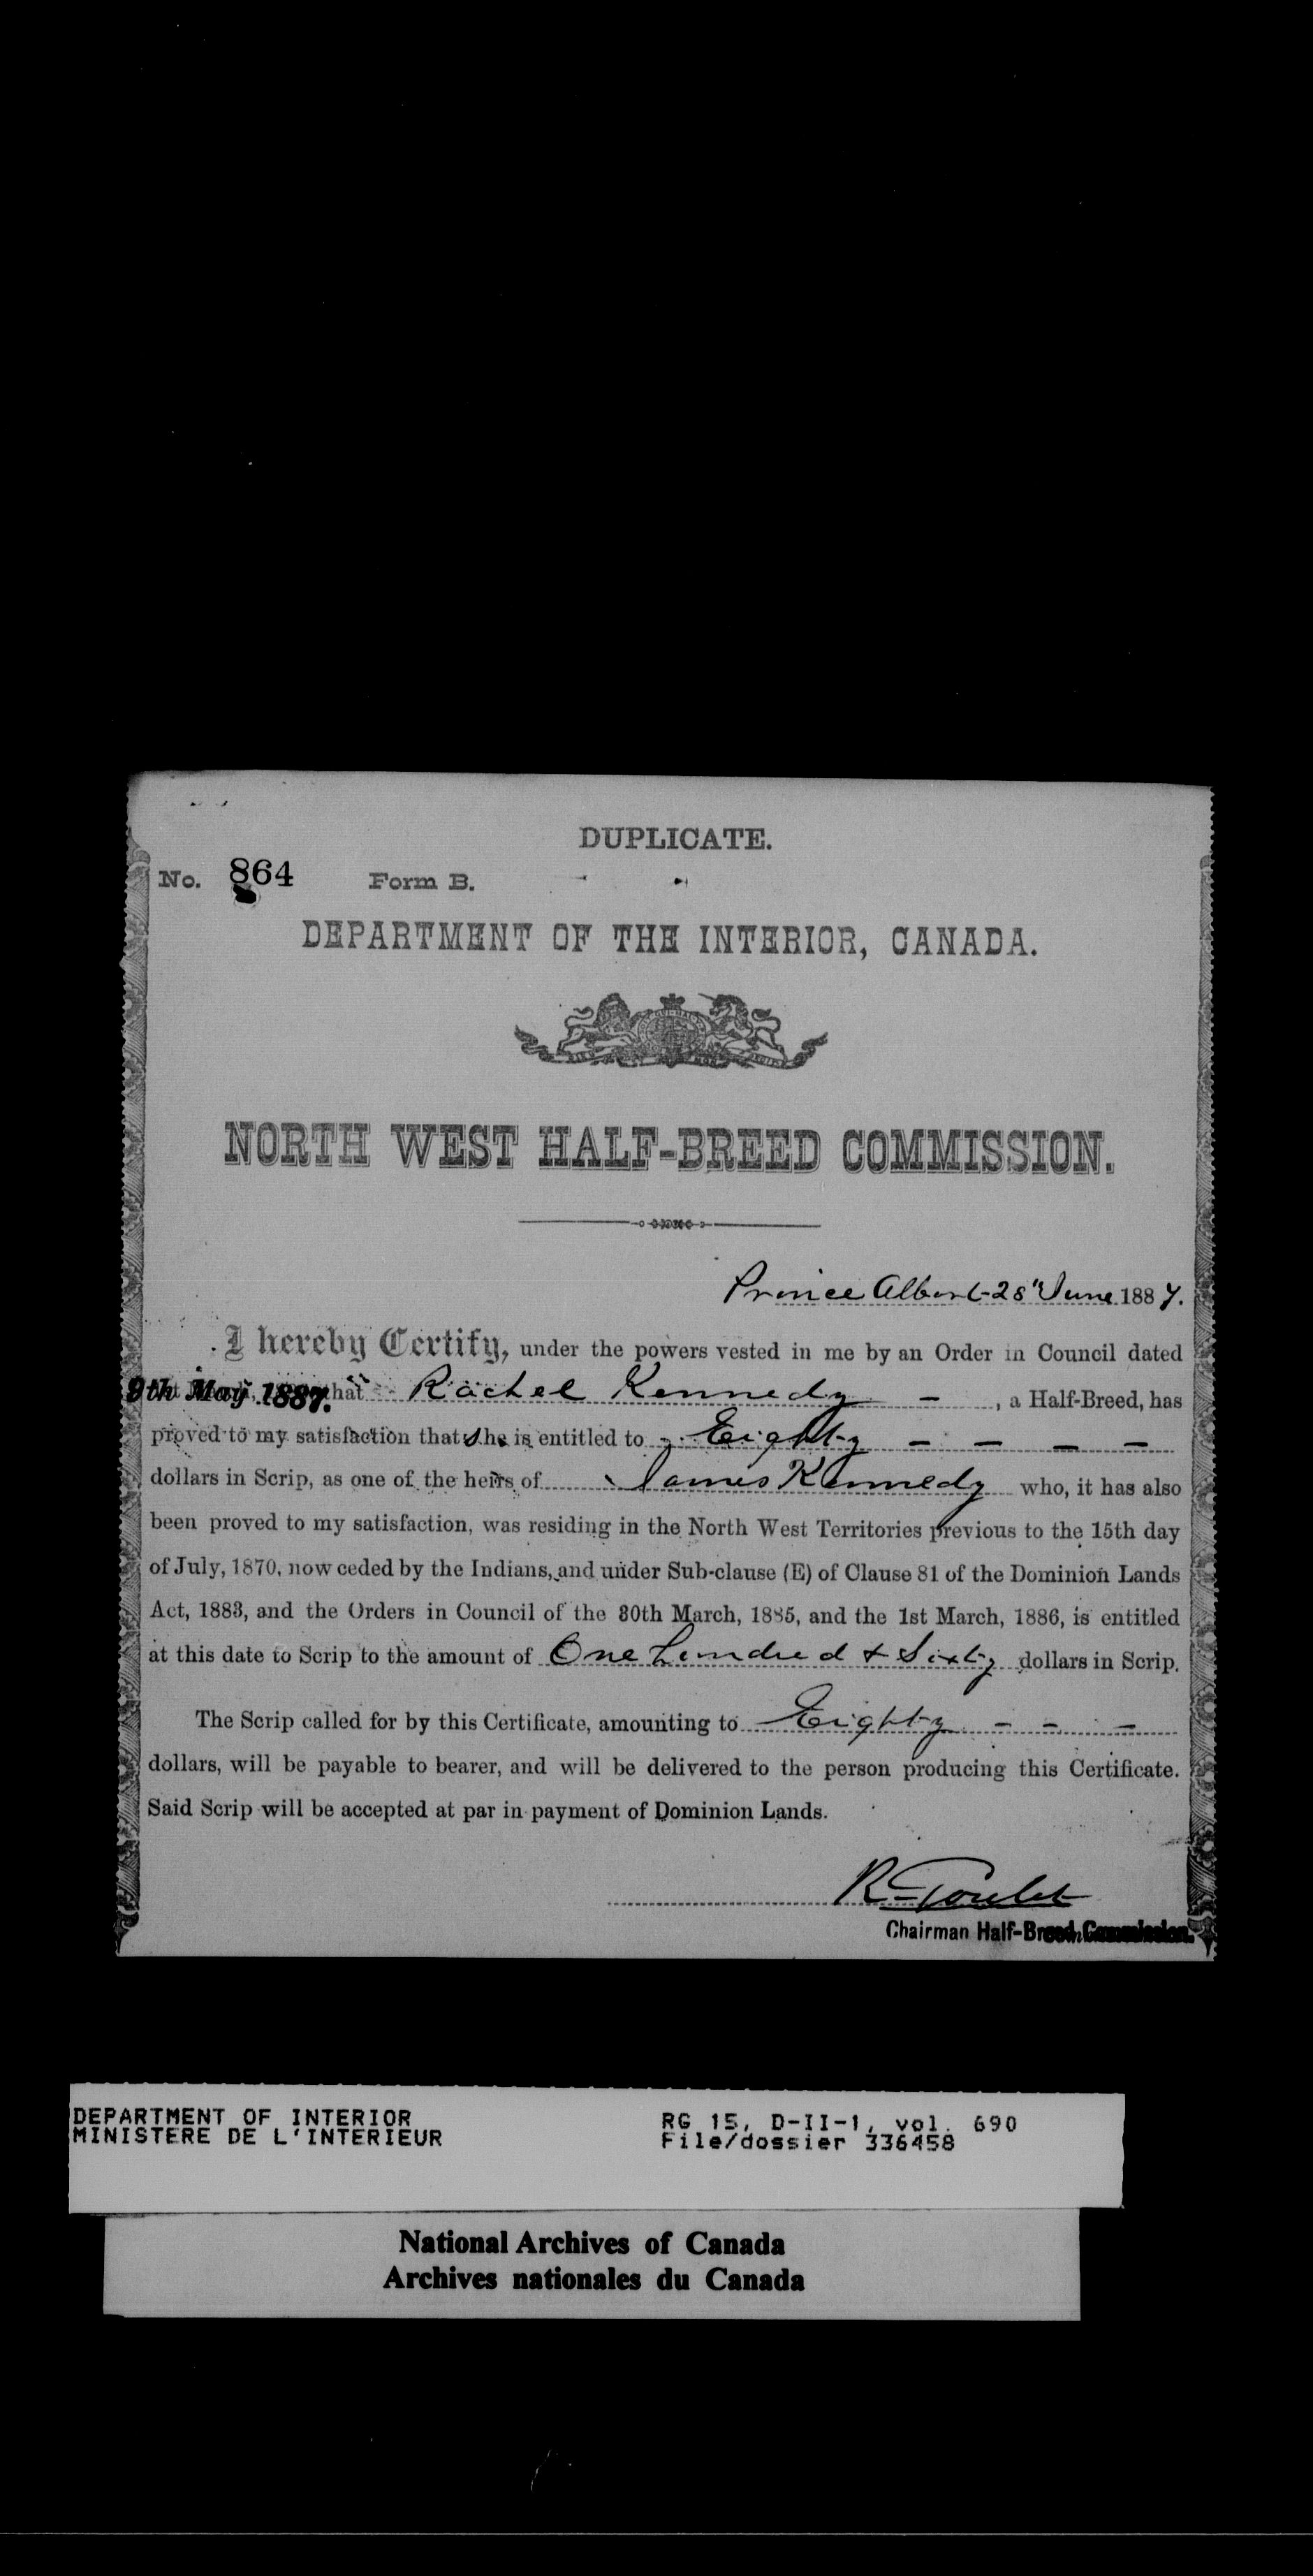 DUPLICATE.
No. 864 Form B.
DEPARTMENT OF THE INTERIOR, CANADA.
NORTH WEST HALF-BREED COMMISSION.
Prince Albert 28" June 1887.
I hereby Certify, under the powers vested in me by an Order in Council dated
9th May 1887. that Rachel Kennedy - , a Half-Breed, has
proved to my satisfaction that she is entitled to Eighty - - - -
dollars in Scrip, as one of the heirs of James Kennedy who, it has also
been proved to my satisfaction, was residing in the North West Territories previous to the 15th day
of July, 1870, now ceded by the Indians, and under Sub-clause (E) of Clause 81 of the Dominion Lands
Act, 1883, and the Orders in Council of the 30th March, 1885, and the 1st March, 1886, is entitled
at this date to Scrip to the amount of One hundred & Sixty dollars in Scrip.
The Scrip called for by this Certificate, amounting to Eighty - - -
dollars, will be payable to bearer, and will be delivered to the person producing this Certificate.
Said Scrip will be accepted at par in payment of Dominion Lands.
R Goulet
Chairman Half-Breed Commission.
DEPARTMENT OF INTERIOR RG 15, D-II-1, vol. 690
MINISTERE DE L'INTERIEUR File/dossier 336458
National Archives of Canada
Archives nationales du Canada